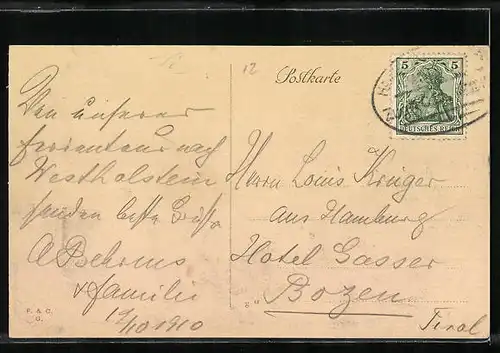 12
Postkarte
5 5
DEUTSCHES REICH
Von unserer
Ferientour nach
Westholstein
senden beste Grüße
A Behrens
& Familie
19/10 1910
Herrn Louis Krüger
aus Hamburg
Hotel Gasser
Bozen
Tirol
F. & C.
G.